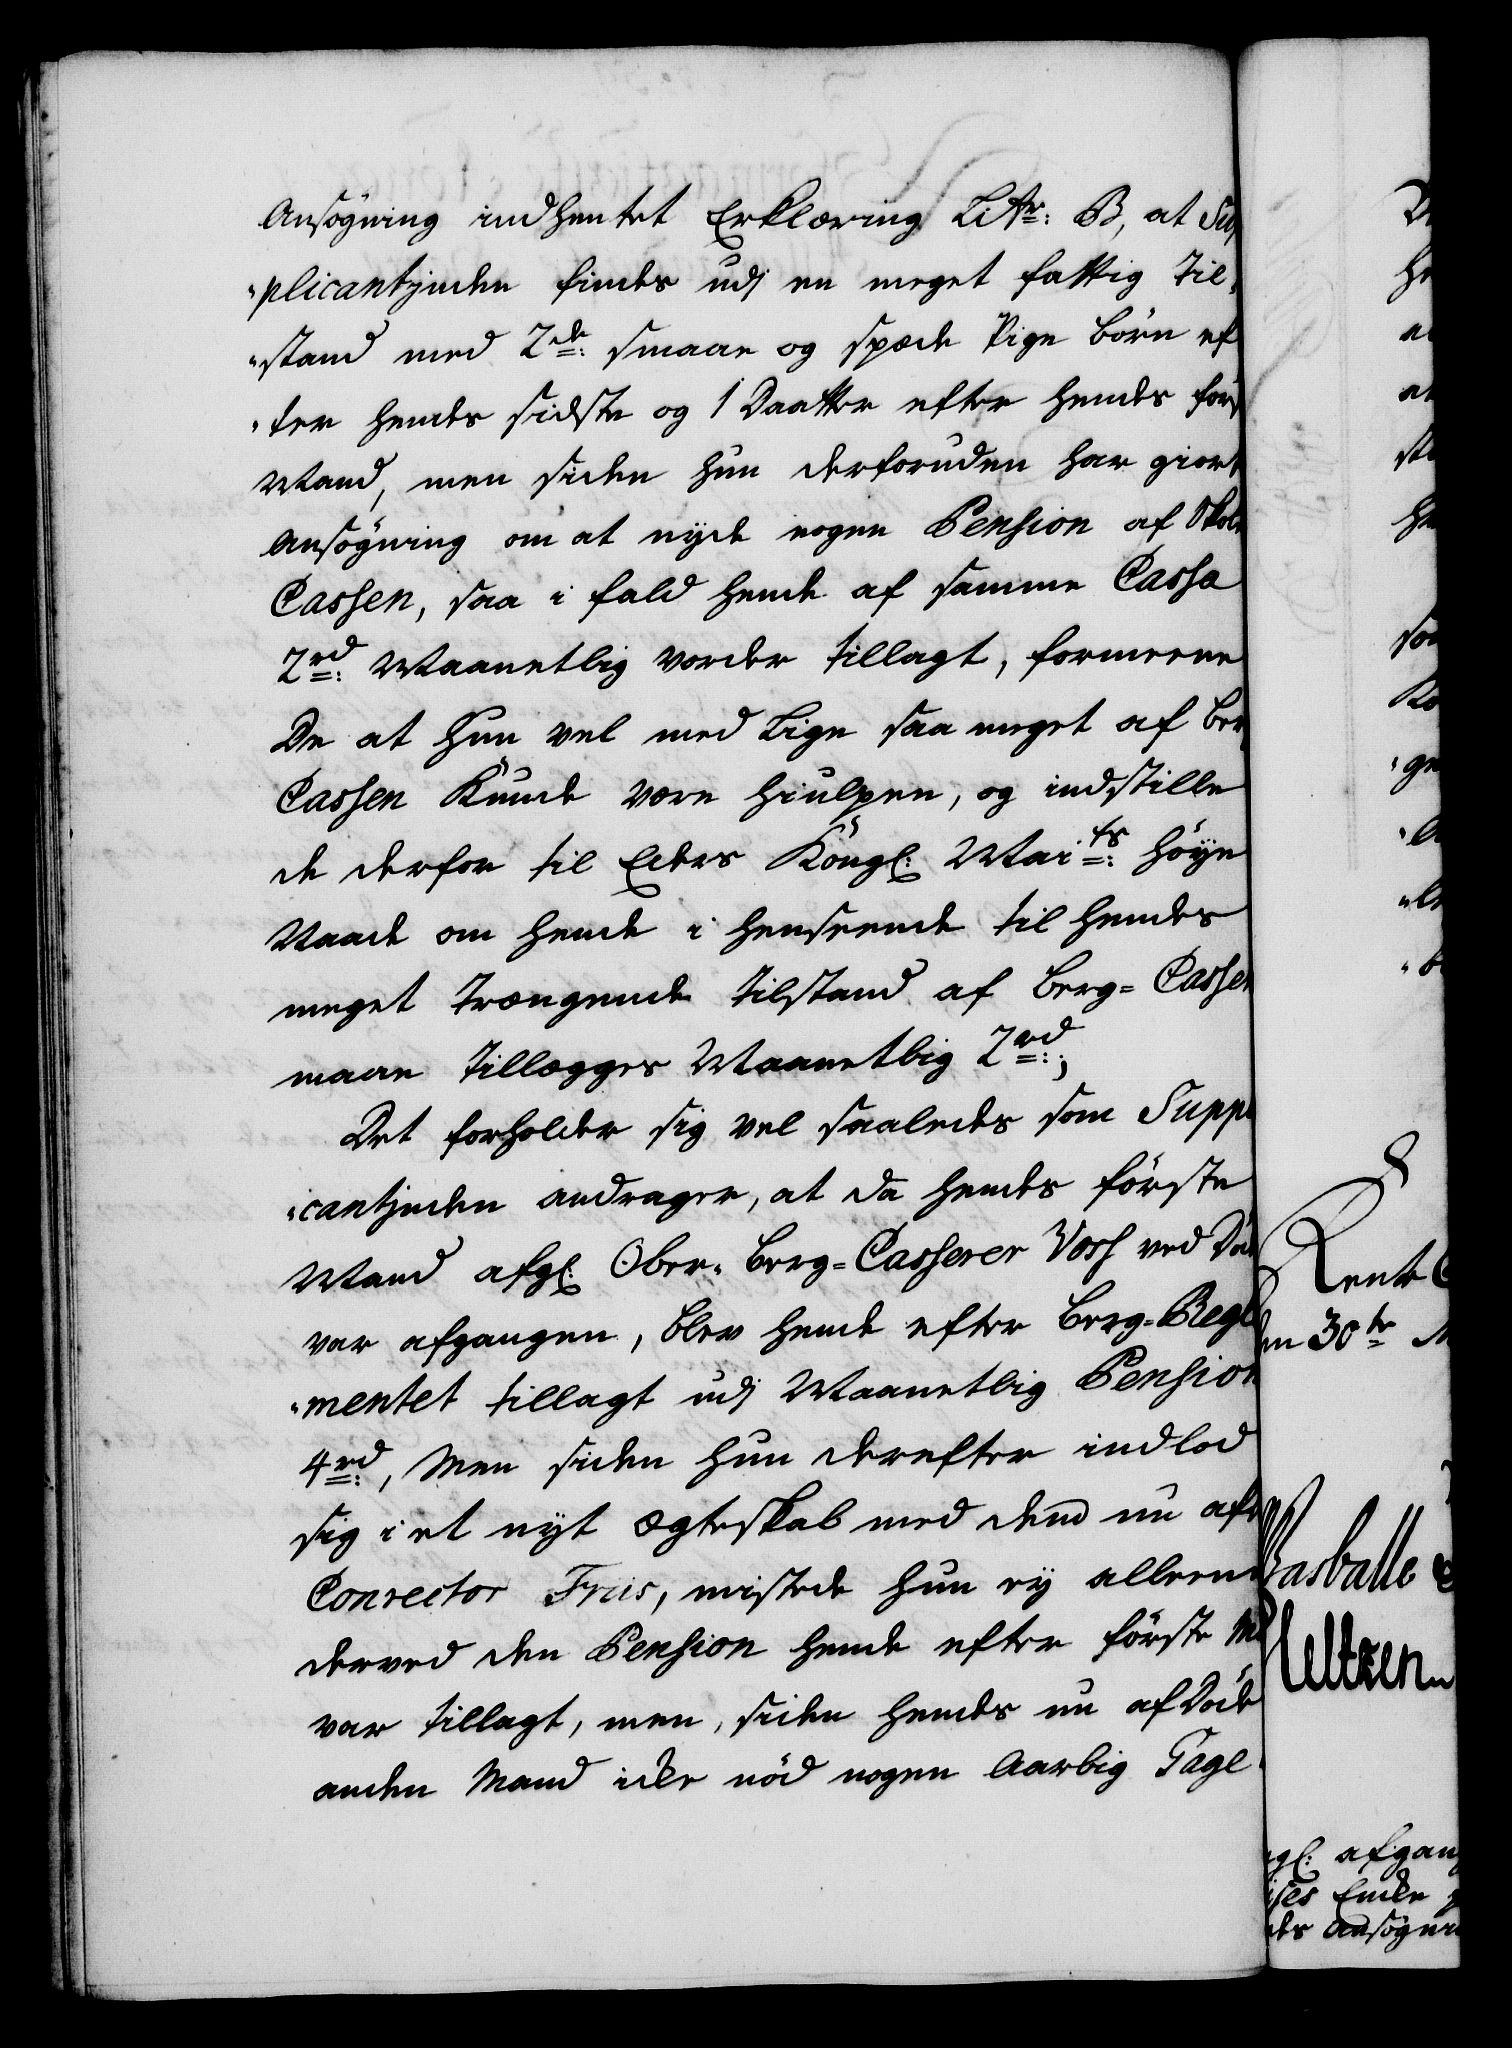 Ansøgning indhentet Erklæring Litr: B, at Sup
"plicantjnden findes udj en meget fattig Til,
"stand med 2de: smaae og spæde Pige Børn ef
"ter hendes sidste og 1 Daatter efter hendes før
Mand, men siden hun derforuden har giort
Ansøgning om at nyde nogen Pension af Skole
Cassen, saa i fald hende af samme Cassa
2rd: Maanetlig vorder tillagt, formeene
De at hun vel med Lige saa meget af Ber
Cassen Kunde være hiulpen, og indstille
de derfor til Eders Kongl: Maits: høye
Naade om hende i henseende til hendes
meget Trængende Tilstand af Berg= Cassen
maae Tillægges Maanetlig 2rd:;
Det forholder sig vel saaledes som Suppl
"cantjnden andrager, at da hendes første
Mand afgl: Ober= Berg=Casserer Voss ved Død
var afgangen, blev hende efter Berg=Regle
"mentet tillagt udj Maanetlig Pension
4rd:, Men siden hun derefter indlod
sig i et nyt Ægteskab med dend nu afg
Conrector Friis, mistede hun ey alleene
derved den Pension hende efter første M
var tillagt, men, siden hendes nu afDøde
anden Mand icke nød nogen Aarlig Gage
Rente C
en 30te M
Barballe
Heltzen
gl: afgang
ises Encke
des Ansøgni